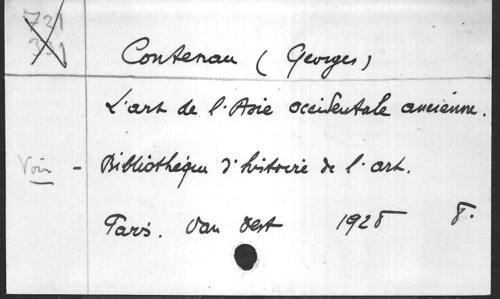 721
Contenau (Georges)
L'art de l'Asie occidentale ancienne.
Voir - Bibliothèque d'histoire de l'art.
Paris. Van Oest 1928 8.